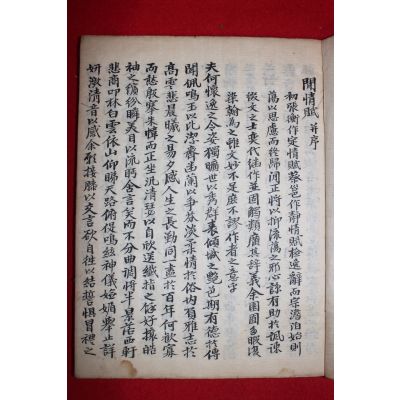 閒情賦 并序
初張衡作定情賦蔡邕作靜情賦檢逸辭而宗澹泊始則
蕩以思慮而終歸閑正將以抑流蕩之邪心諒有助於諷諫
綴文之士奕代継作並固觸類廣其辞義余園多暇復
染翰為之雖文妙不足庶不謬作者之意乎
夫何懷逸之令姿獨曠世以秀群表傾城之艶色期有德於傳
聞佩鳴玉以比潔齊幽蘭以爭芬淡柔情於俗內負雅志於
高雲悲晨曦之易夕感人生之長勤同一盡於百年何歡寡
而愁殷褰朱幃而正坐汎清瑟以自欣送纖指之餘好攘皓
袖之繽紛瞬美目以流眄含言笑而不分曲調將半景落西軒
悲商叩林白雲依山仰睇天路俯促鳴絃神儀嫵媚擧止詳
妍激清音以感余願接膝以交言欲自往以結誓懼冒禮之